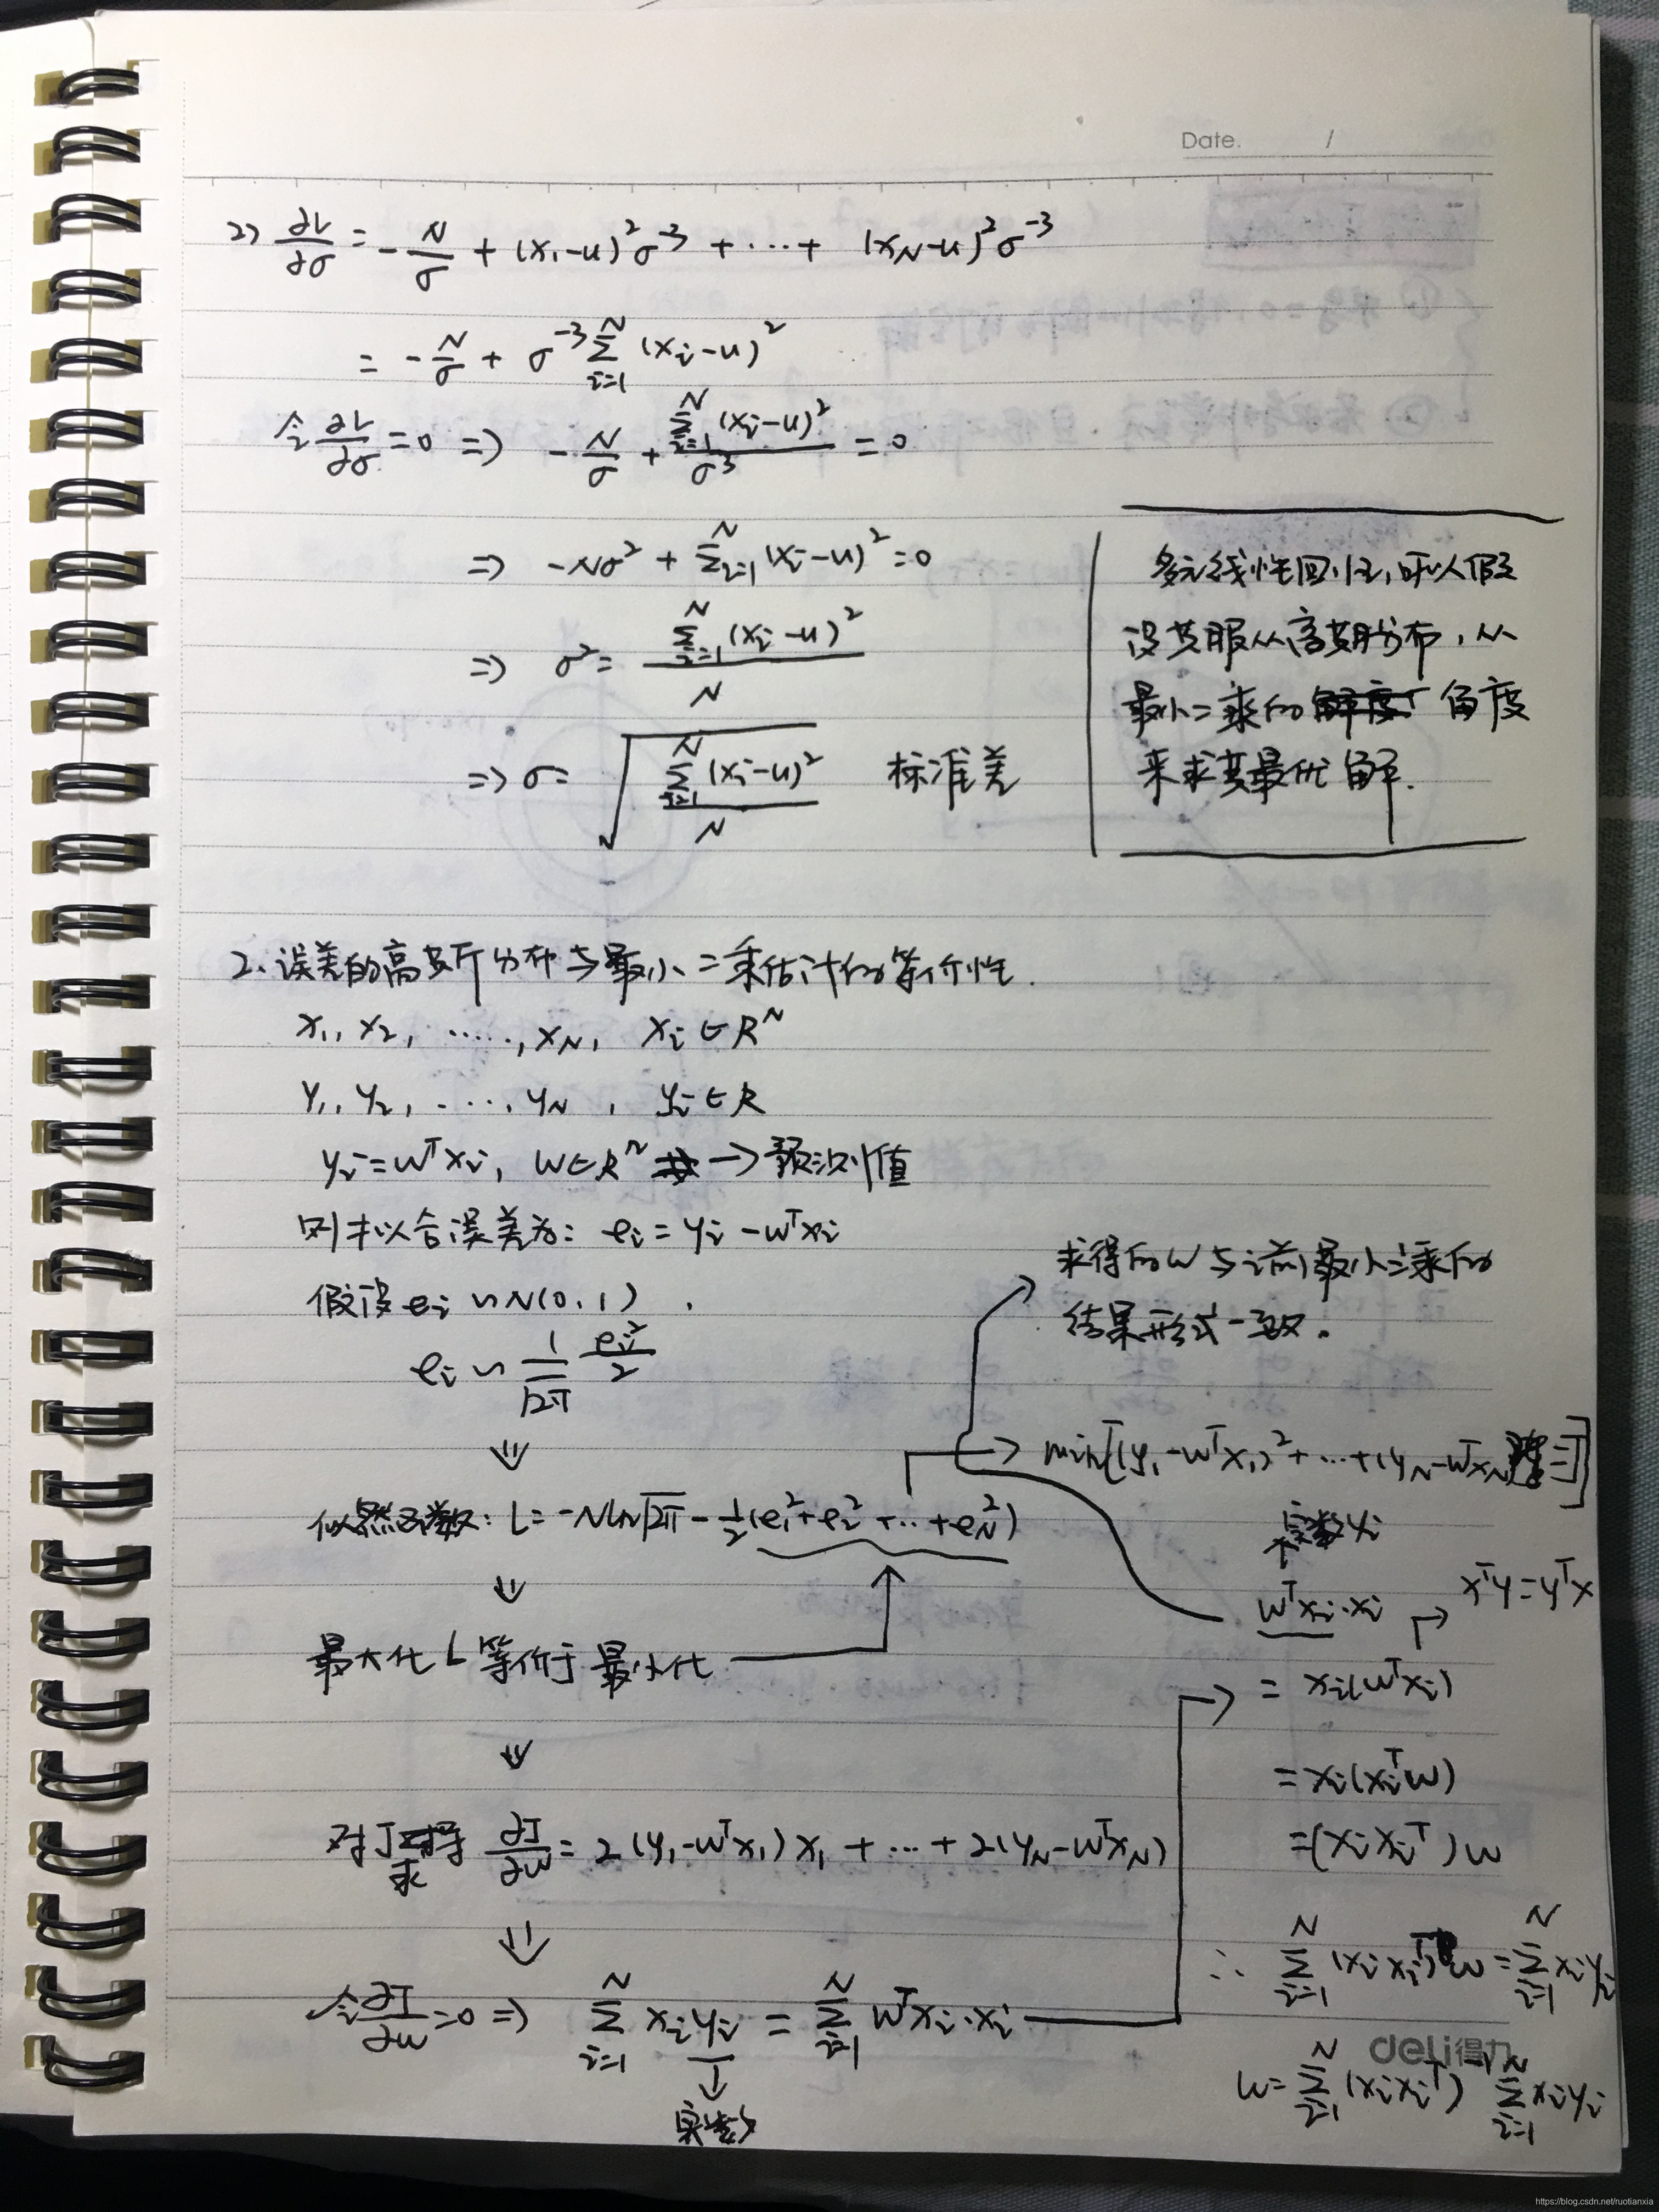 Date. /
2) ∂L/∂σ = -N/σ + (x₁-u)²σ⁻³ + ⋯ + (x_N-u)²σ⁻³
= -N/σ + σ⁻³ ∑_{i=1}^{N} (x_i-u)²
令 ∂L/∂σ = 0 => -N/σ + ∑_{i=1}^{N}(x_i-u)²/σ³ = 0
=> -Nσ² + ∑_{i=1}^{N} (x_i-u)² = 0
=> σ² = ∑_{i=1}^{N}(x_i-u)²/N
=> σ = √(∑_{i=1}^{N}(x_i-u)²/N) 标准差
多元线性回归,可以假
设其服从高斯分布,从
最小二乘的 角度
来求其最优解.
2. 误差的高斯分布与最小二乘估计的等价性.
x₁, x₂, ⋯⋯, x_N, x_i ∈ R^N
y₁, y₂, ⋯, y_N, y_i ∈ R
y_i = w^T x_i, w ∈ R^n → 预测值
则拟合误差为: e_i = y_i - w^T x_i
假设 e_i ~ N(0,1).
e_i ~ 1/√2π e_i²/2
求得的w与之前最小二乘的
结果形式一致。
⇓
min[(y₁-w^T x₁)²+⋯+(y_N-w^T x_N) =J]
似然函数: L = -Nln√2π - 1/2(e₁²+e₂²+⋯+e_N²)
⇓
最大化L等价于最小化
⇓
对J求导 ∂J/∂w = 2(y₁-w^T x₁)x₁ + ⋯ + 2(y_N-w^T x_N)
⇓
令 ∂J/∂w = 0 => ∑_{i=1}^{N} x_i y_i = ∑_{i=1}^{N} w^T x_i·x_i
实数
实数 y_i
w^T x_i·x_i
x^T y = y^T x
= x_i(w^T x_i)
= x_i(x_i^T w)
= (x_i x_i^T) w
∴ ∑_{i=1}^{N} (x_i x_i^T) w = ∑_{i=1}^{N} x_i y_i
deli得力
w = ∑_{i=1}^{N} (x_i x_i^T)⁻¹ ∑_{i=1}^{N} x_i y_i
https://blog.csdn.net/ruotianxia